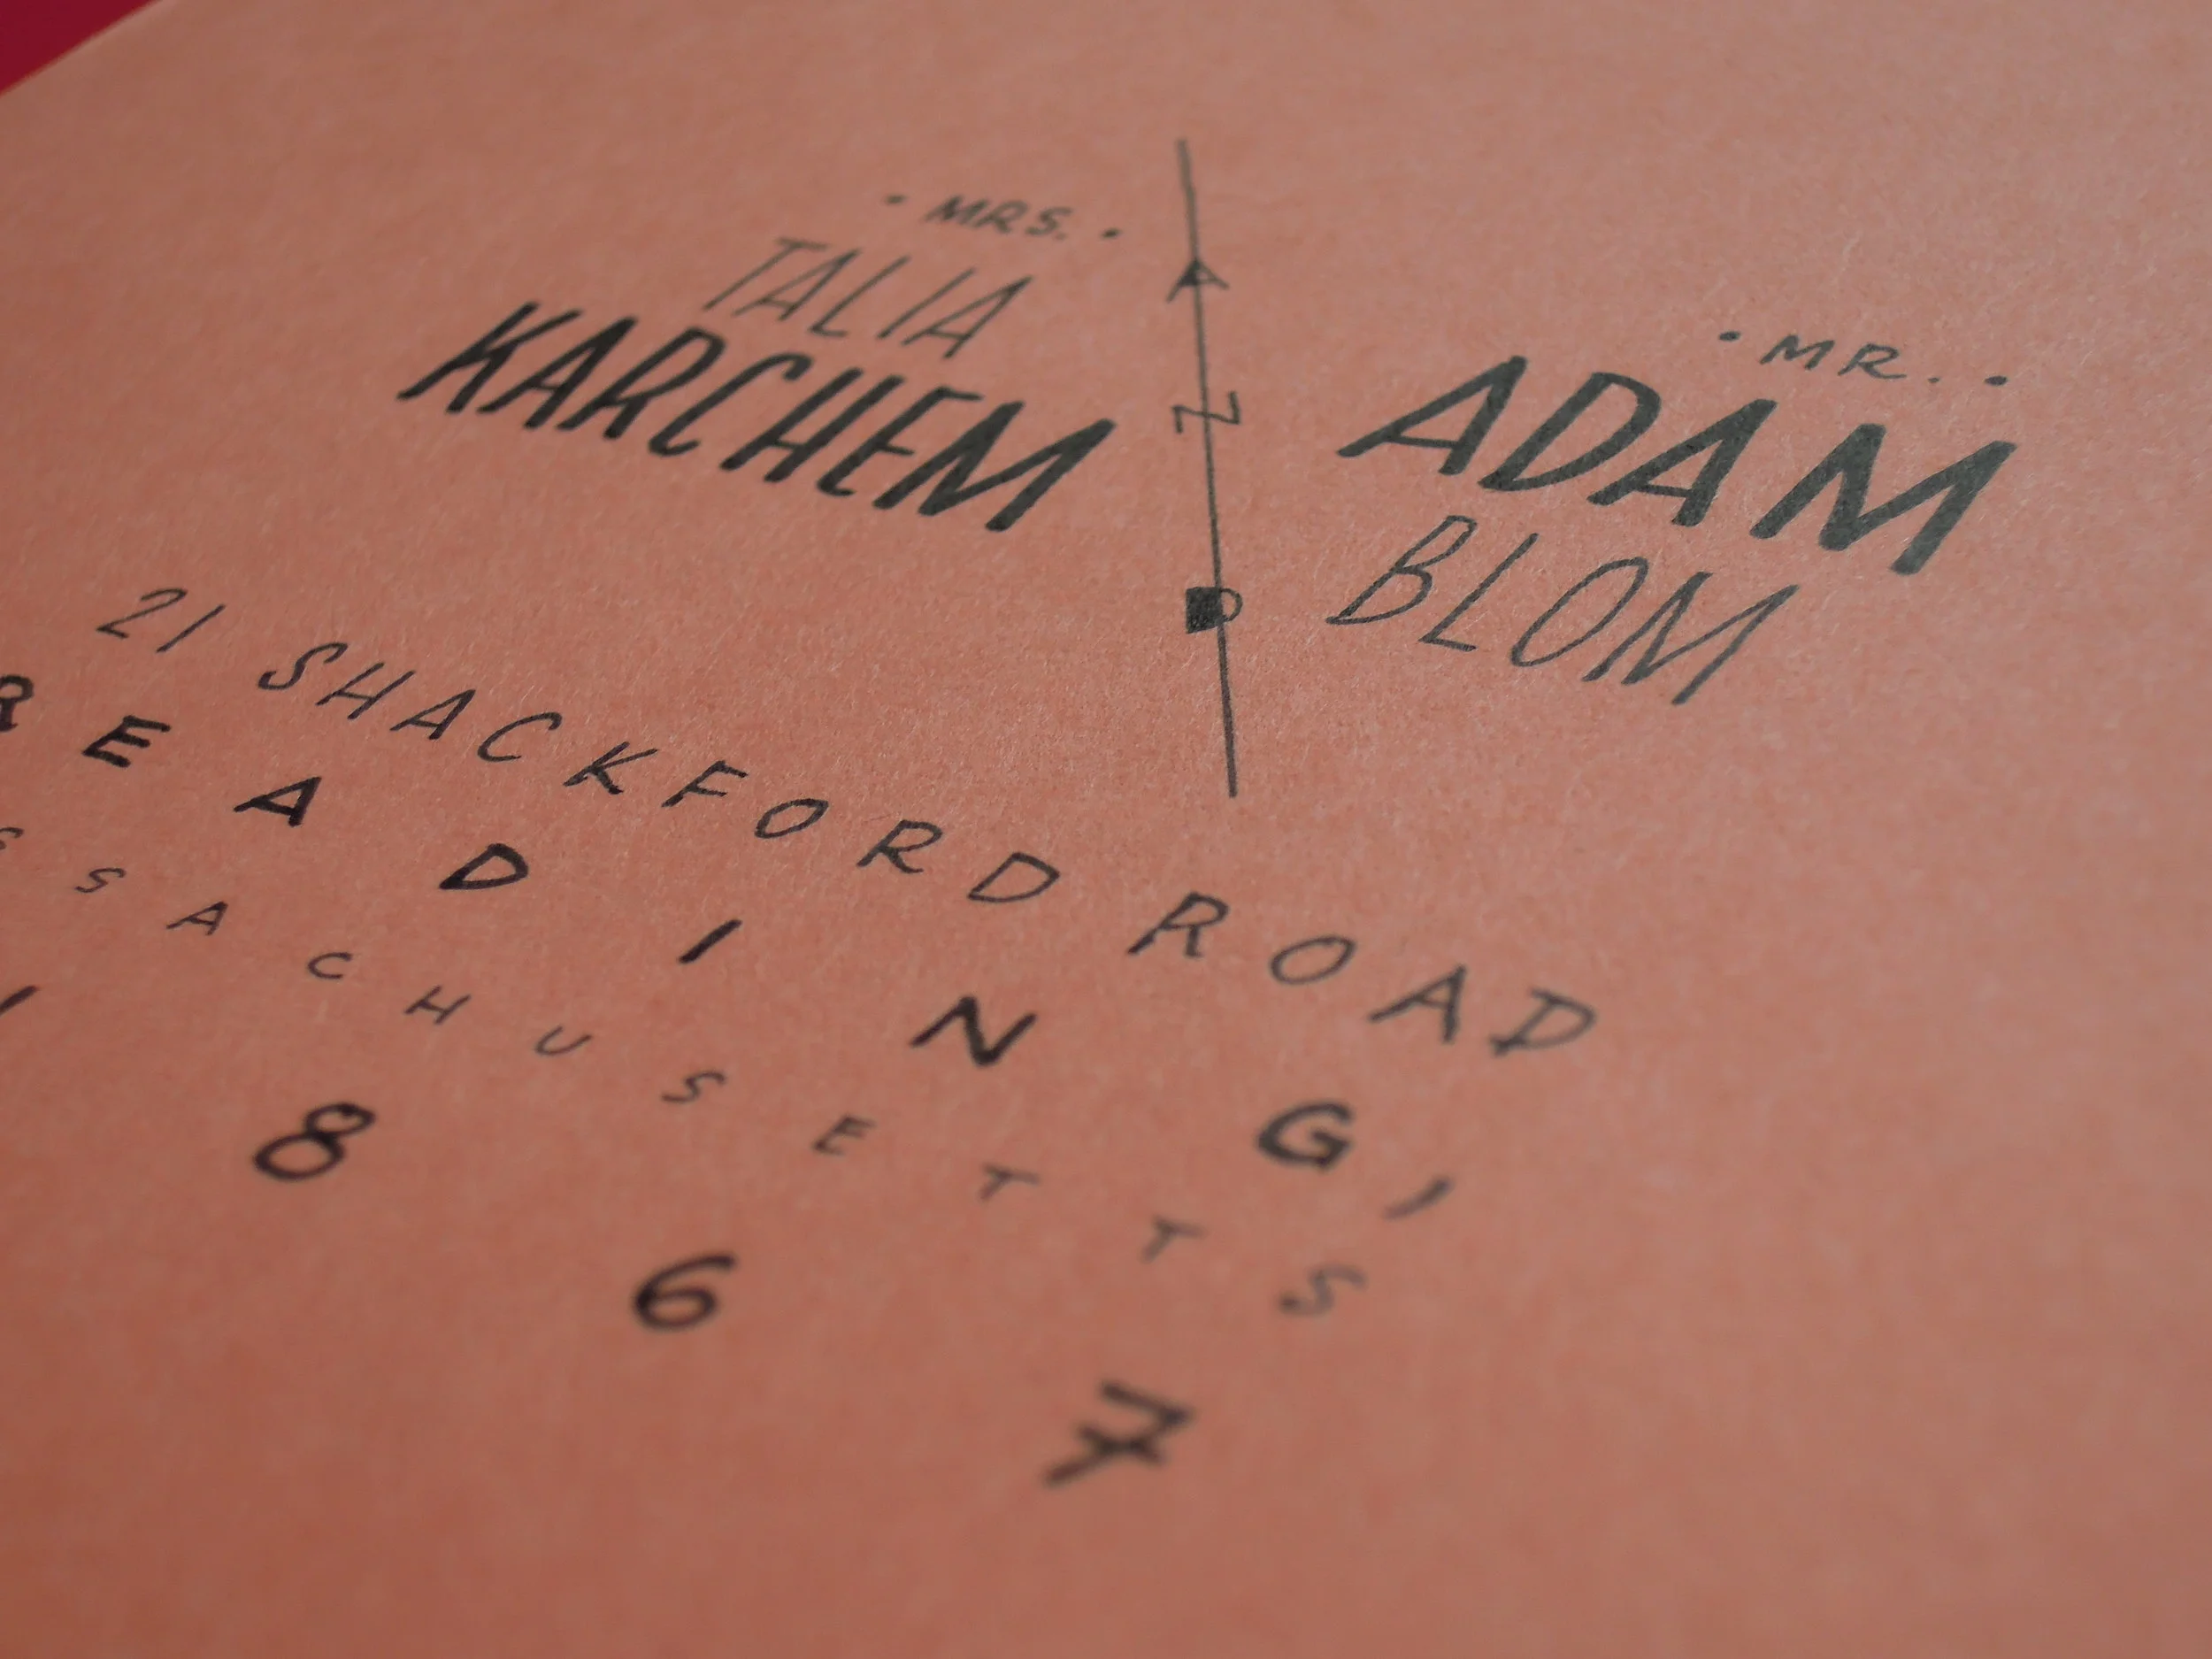 · MRS. ·
TALIA
KARCHEM
AND
· MR. ·
ADAM
BLOM
21 SHACKFORD ROAD
READING,
SSACHUSETTS
1867